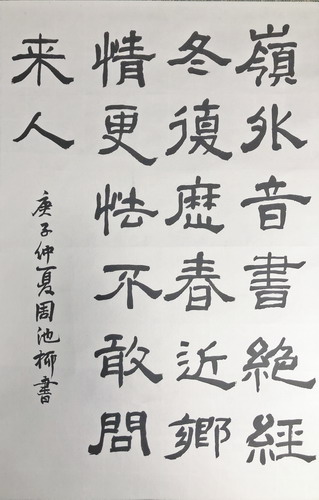 嶺外音書絶經
冬復歴春近鄉
情更怯不敢問
来人
庚子仲夏周池柳書